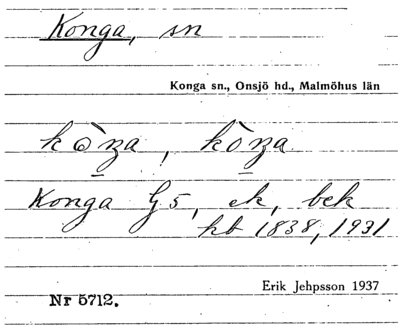 Konga, sn
Konga sn., Onsjö hd., Malmöhus län
kòŋa, kòŋa
Konga G5, ek, bek
hb 1838, 1931
Erik Jehpsson 1937
Nr 5712.